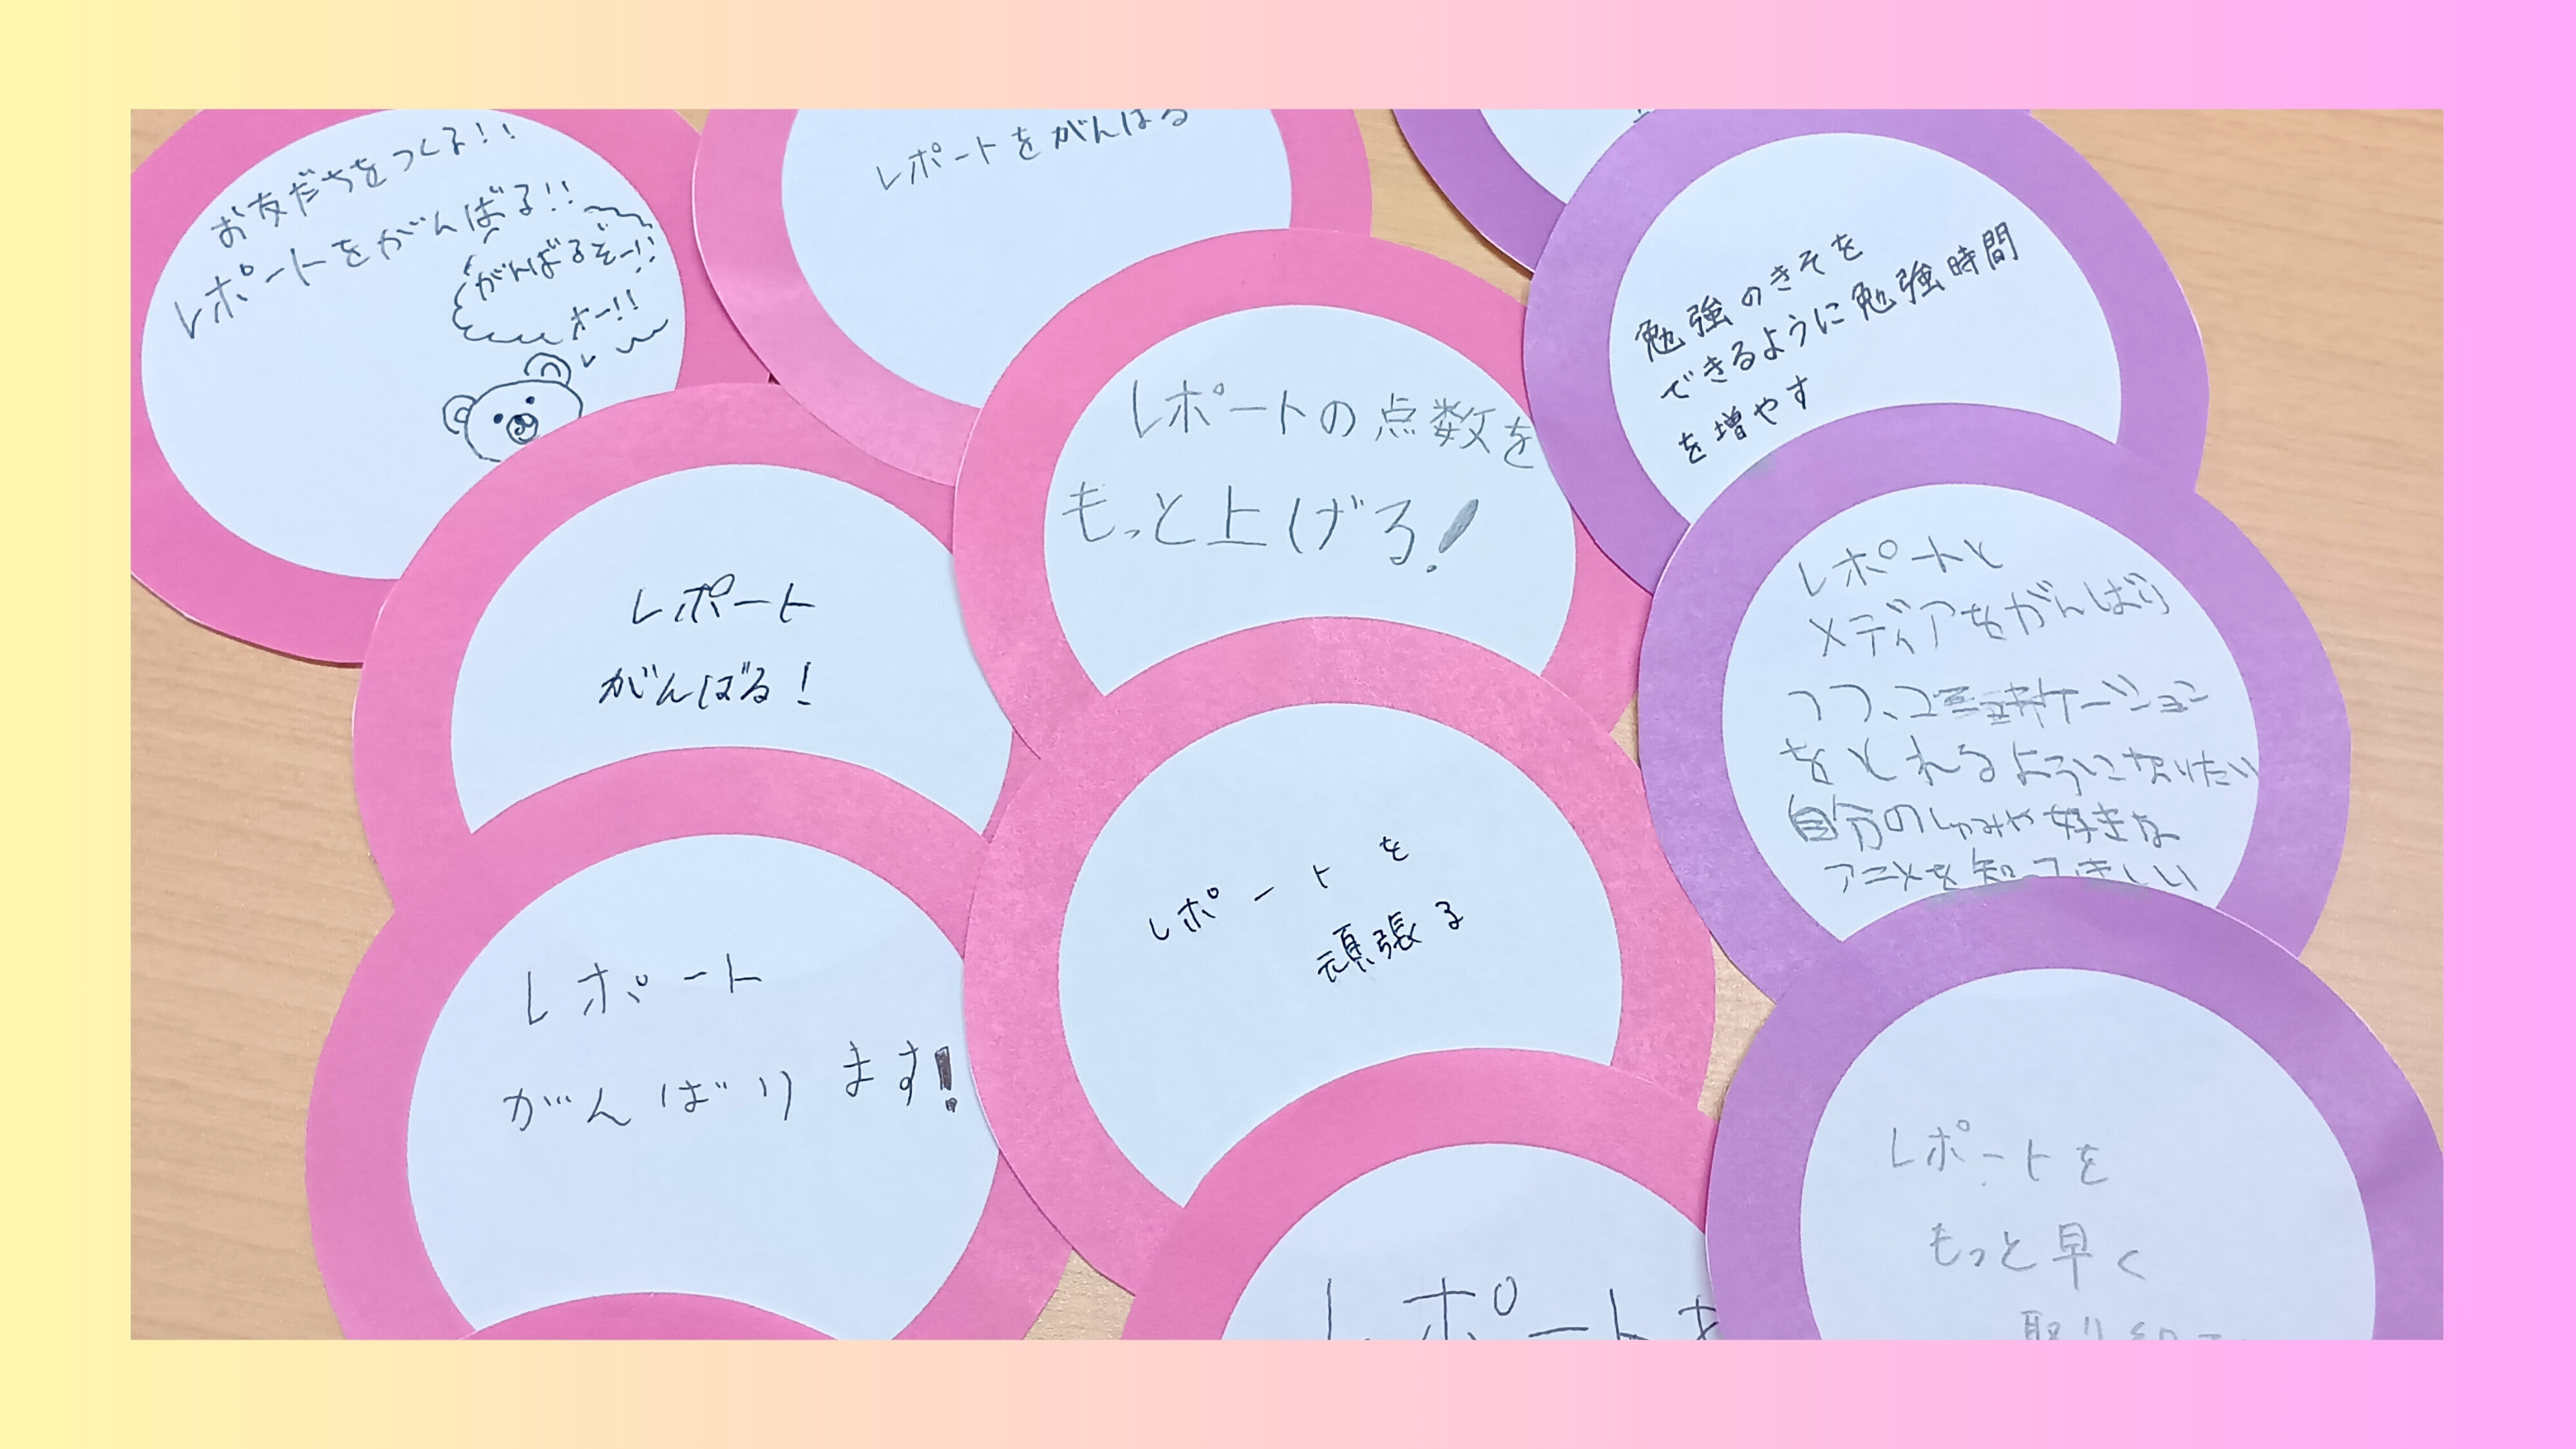 お友だちをつくる!!
レポートをがんばる!!
がんばるぞー!!
オー!!
レポートをがんばる
レポートの点数を
もっと上げろ!
勉強のきそを
できるように勉強時間
を増やす
レポート
がんばる!
レポートと
メディアをがんばり
つつ、コミュニケーション
をとれるようになりたい
自分のしゅみや好きな
アニメを知ってほしい
レポート
がんばります!
レポートを
頑張る
レポートを
レポートを
もっと早く
取り組